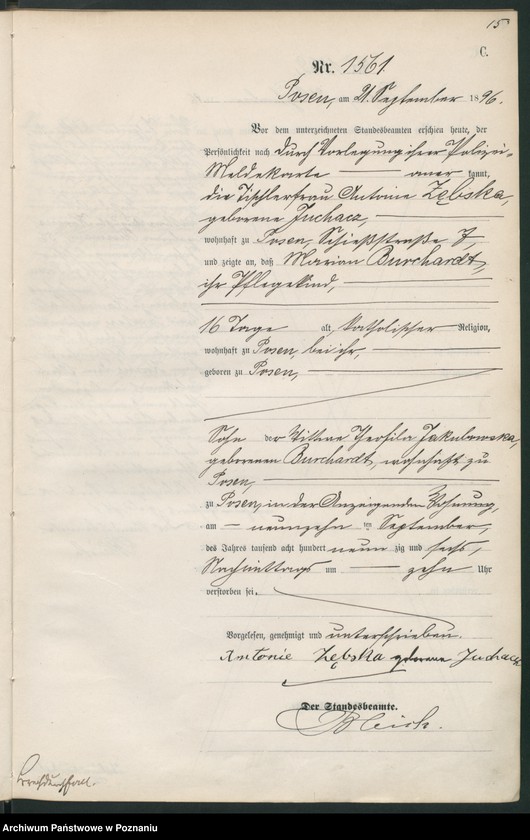 15
C.
Nr. 1561
Posen, am 21. September 1896.
Vor dem unterzeichneten Standesbeamten erschien heute, der
Persönlichkeit nach durch Vorlegung ihrer Polizei-
Meldekarte — aner kannt,
die Tischlerfrau Antonie Zębska,
geborene Juchacz,
wohnhaft zu Posen, Schießstraße 7,
und zeigte an, daß Marian Burchardt,
ihr Pflegekind,
16 Tage alt, katholischer Religion,
wohnhaft zu Posen bei ihr,
geboren zu Posen,
Sohn der Wittwe Theofila Jakubowska,
geborenen Burchardt, wohnhaft zu
Posen,
zu Posen, in der Anzeigenden Wohnung,
am — neunzehn ten September,
des Jahres tausend acht hundert neun zig und sechs,
Nachmittags um — zehn Uhr
verstorben sei.
Vorgelesen, genehmigt und unterschrieben.
Antonie Zębska geborene Juchacz
Der Standesbeamte.
Brechdurchfall.
Archiwum Państwowe w Poznaniu